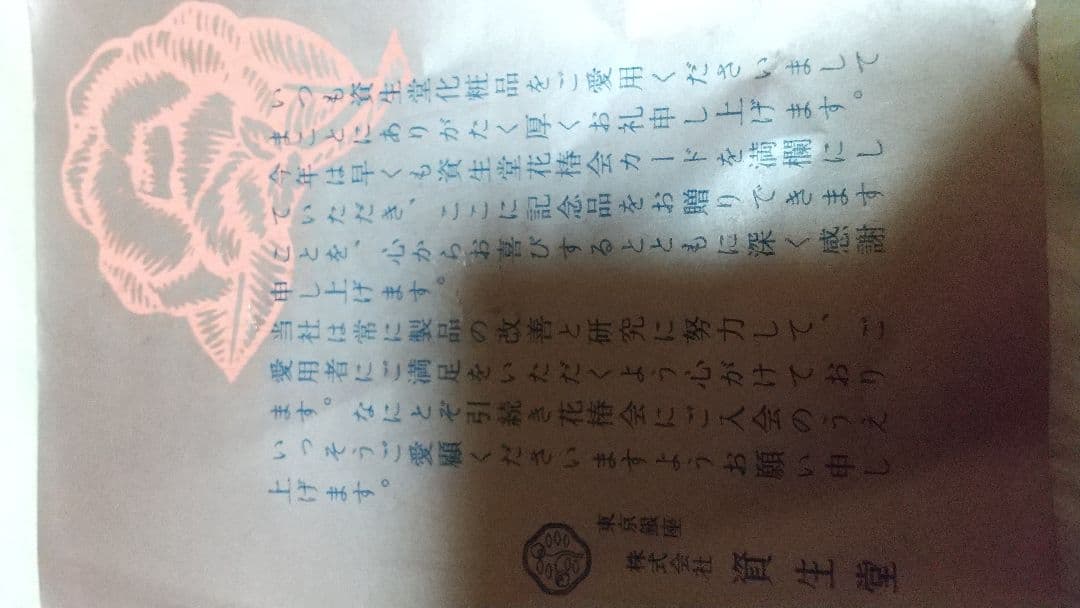 いつも資生堂化粧品をご愛用くださいまして
まことにありがたく厚くお礼申し上げます。
今年は早くも資生堂花椿会カードを満欄にし
ていただき、ここに記念品をお贈りできます
ことを、心からお喜びするとともに深く感謝
申し上げます。
当社は常に製品の改善と研究に努力して、ご
愛用者にご満足をいただくよう心がけており
ます。なにとぞ引続き花椿会にご入会のうえ
いっそうご愛顧くださいますようお願い申し
上げます。
東京銀座
株式会社 資生堂